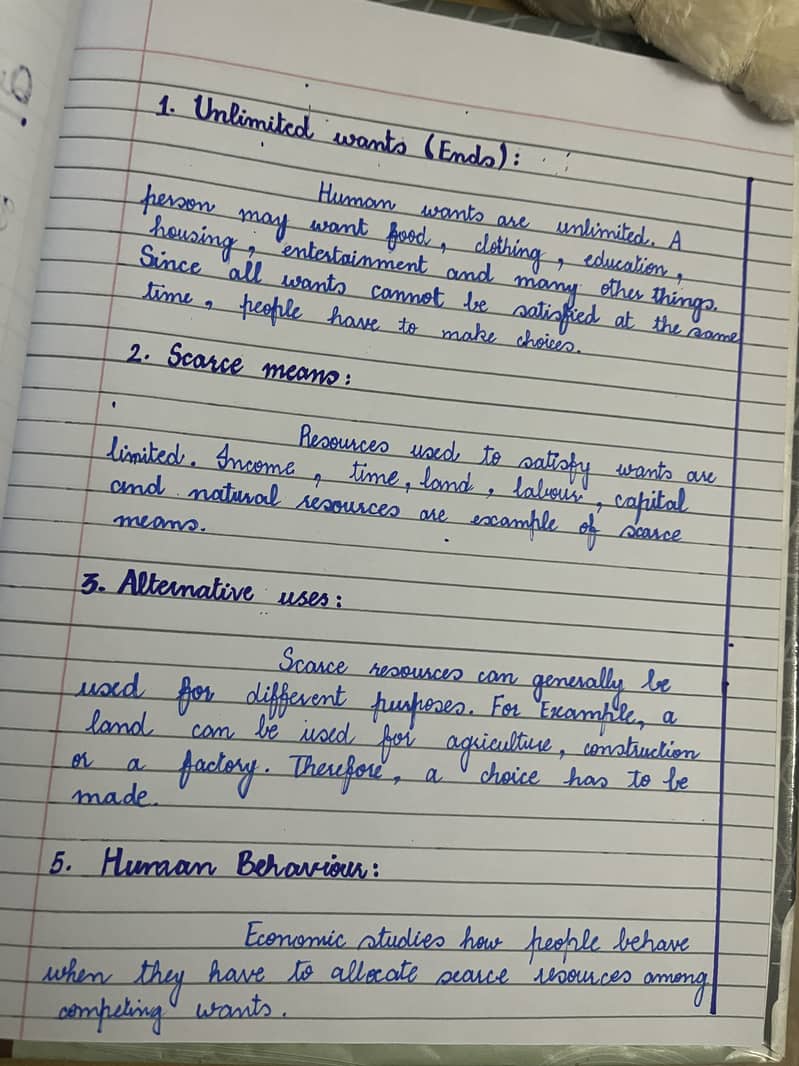 1. Unlimited wants (Ends):
Human wants are unlimited. A
person may want food, clothing, education,
housing, entertainment and many other things.
Since all wants cannot be satisfied at the same
time, people have to make choices.
2. Scarce means:
Resources used to satisfy wants are
limited. Income, time, land, labour, capital
and natural resources are example of scarce
means.
3. Alternative uses:
Scarce resources can generally be
used for different purposes. For Example, a
land can be used for agriculture, construction
or a factory. Therefore, a choice has to be
made.
5. Human Behaviour:
Economic studies how people behave
when they have to allocate scarce resources among
competing wants.